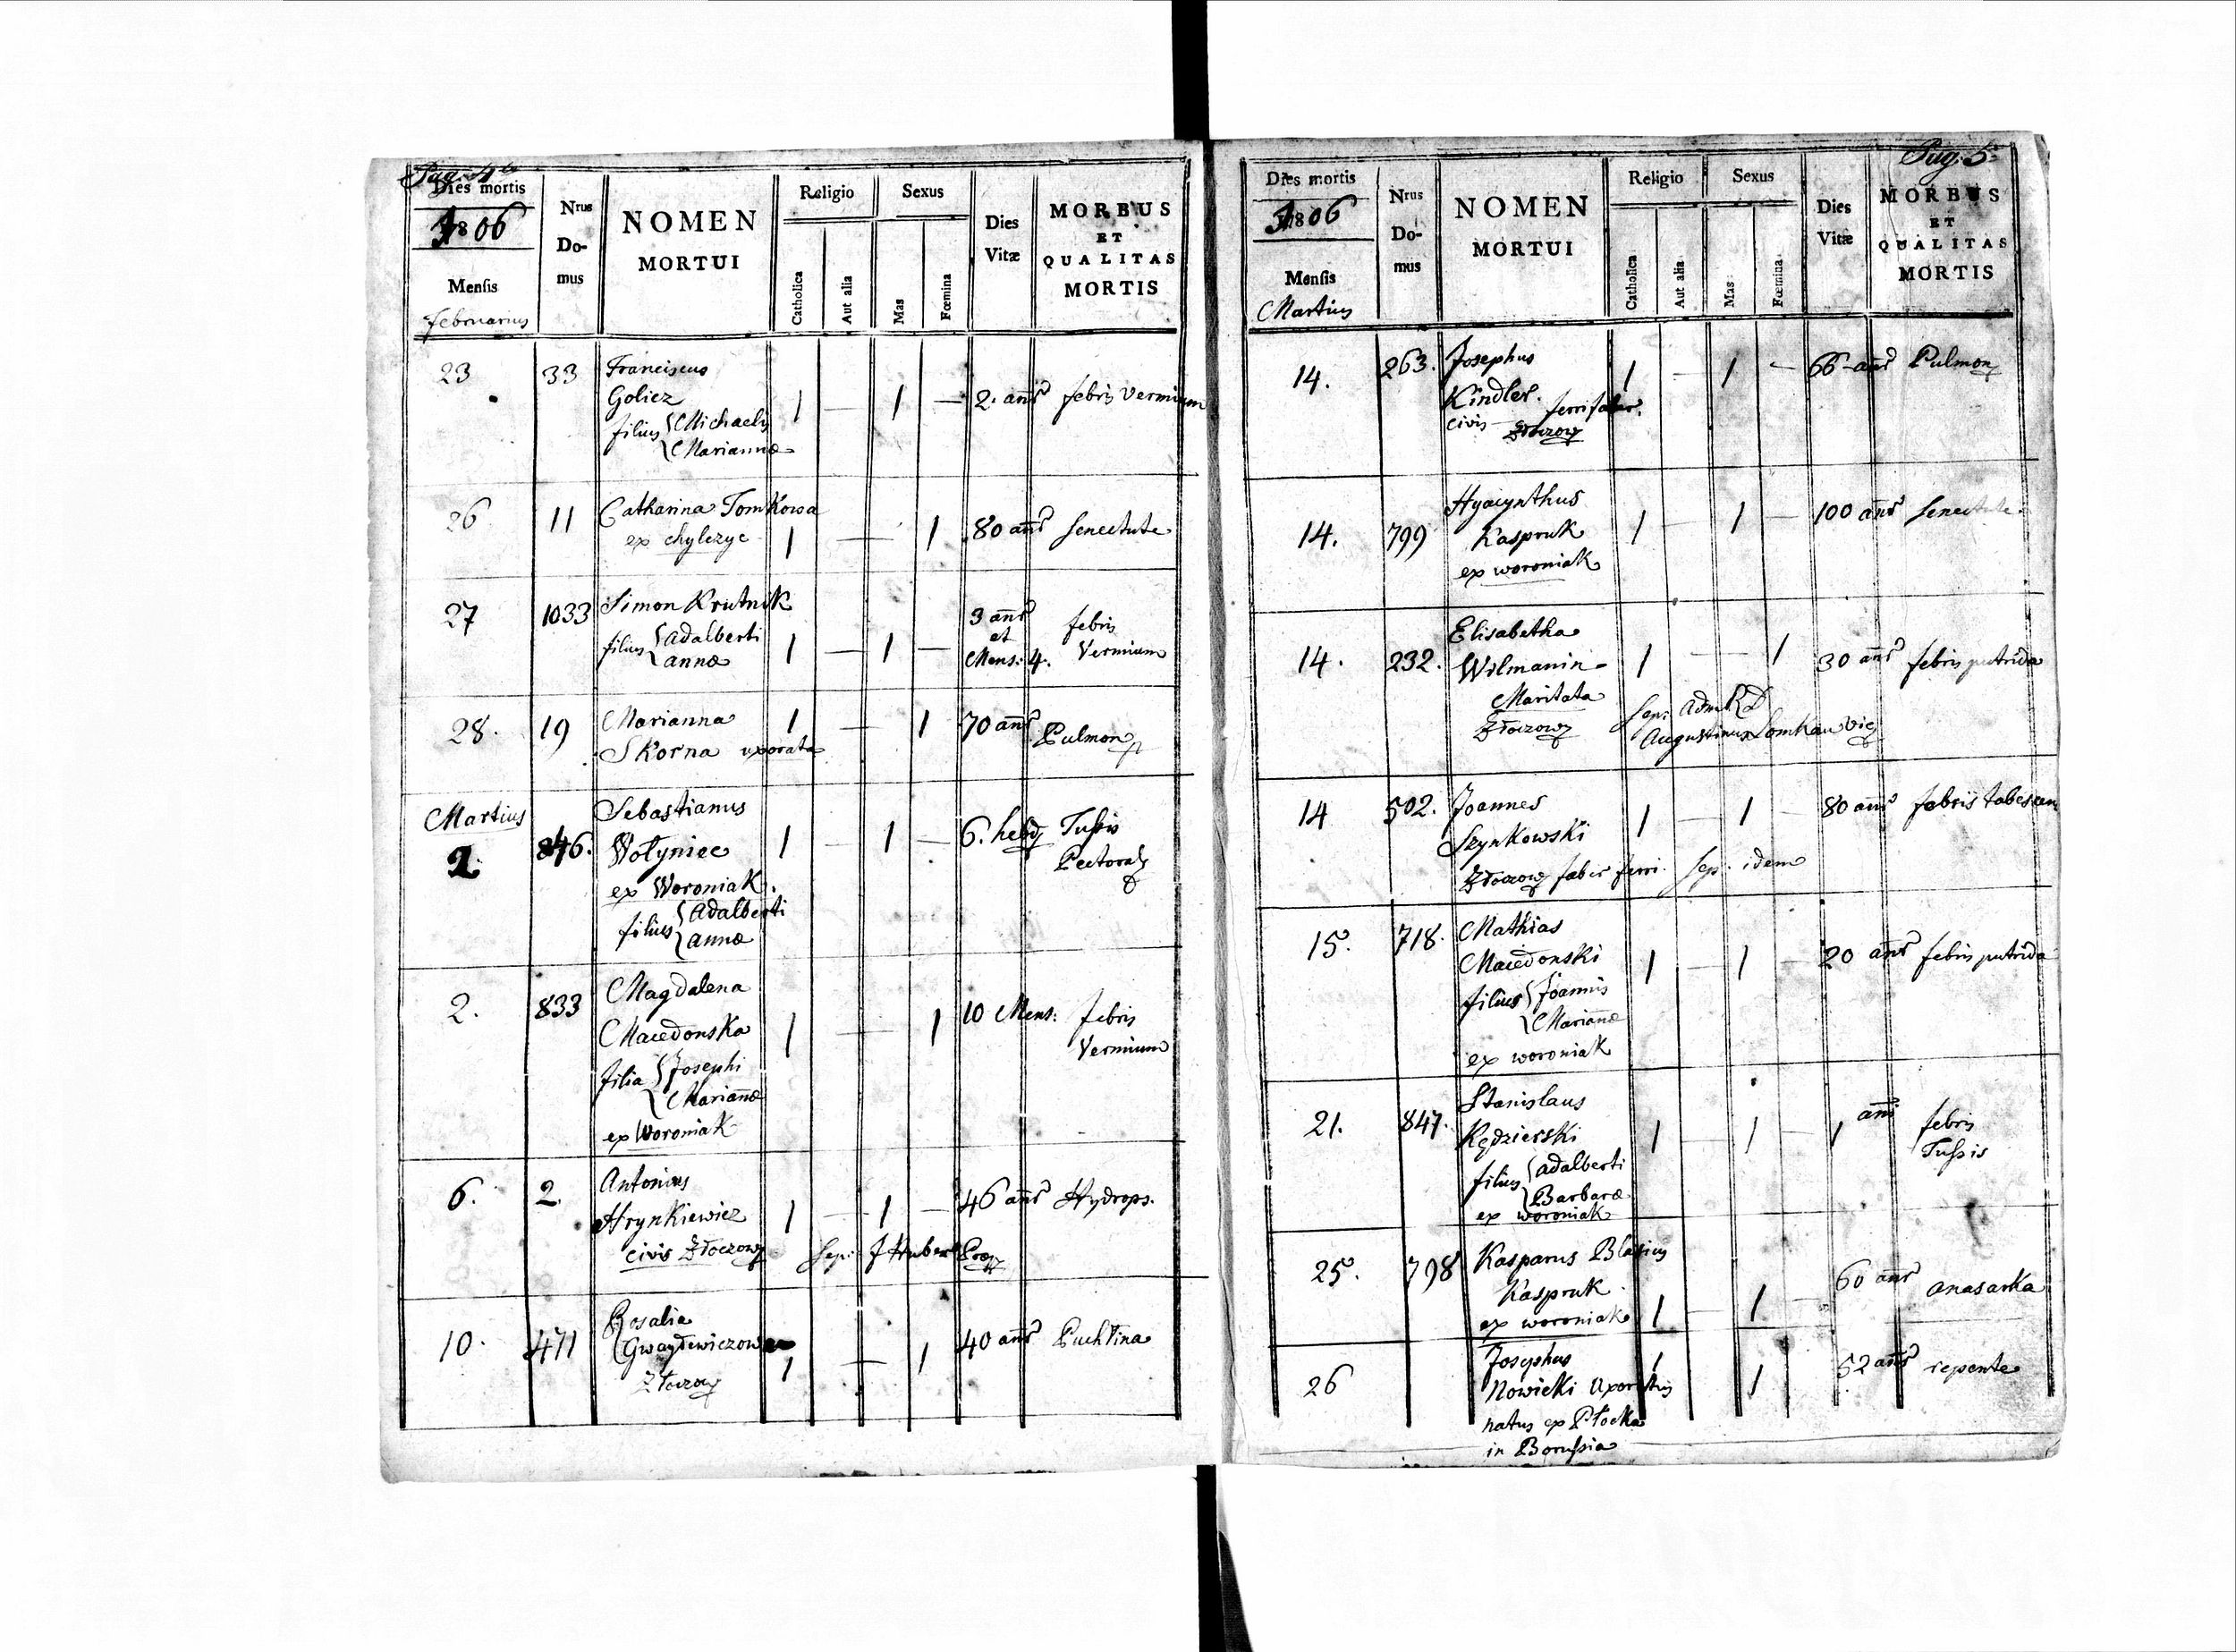 Pag. 4ta
Dies mortis
1806
Mensis
februarius
Nrus
Do-
mus
NOMEN
MORTUI
Religio
Catholica
Aut alia
Sexus
Mas
Fœmina
Dies
Vitæ
MORBUS
ET
QUALITAS
MORTIS
23 33 Franciscus
Golicz
filius Michaelis
Mariannæ
1 — 1 — 2. anñ febris vermium
26 11 Catharina Tomkowa
ex chylczyc
1 — 1 80 anñ senectute
27 1033 Simon Krutnik
filius Adalberti
annæ
1 — 1 — 3 anñ
et
Mens: 4.
febris
Vermium
28. 19 Marianna
Skorna uxorata
1 — 1 70 anñ Pulmon
Martius
2. 846. Sebastianus
Wołyniec
ex Woroniak.
filius Adalberti
annæ
1 — 1 — 6. hebd Tussis
Pectoral
2. 833 Magdalena
Macedonska
filia Josephi
Mariañæ
ex Woroniak
1 — 1 10 Mens: febris
Vermium
6. 2. Antonius
Hrynkiewicz
civis Złoczow
1 — 1 — 46 anñ Hydrops.
Sep: J Hubert Præp
10. 471 Rosalia
Złoczow
1 — 1 40 anñ Puchlina
Pag. 5
Dies mortis
1806
Mensis
Martius
Nrus
Do-
mus
NOMEN
MORTUI
Religio
Catholica
Aut alia
Sexus
Mas
Fœmina
Dies
Vitæ
MORBUS
ET
QUALITAS
MORTIS
14. 263. Josephus
Kindler.
civis ferrifaber.
Złoczow
1 — 1 — 66 anñ Pulmon
14. 799 Hyacynthus
Kaspruk
ex woroniak
1 — 1 — 100 anñ senectute.
14. 232. Elisabetha
Wilmanin
Maritata
Złoczow
1 — — 1 30 anñ febris putrida
Sep: Adm R D
Augustinus Vic
14 502. Joannes
Szynkowski
Złoczow faber ferri. Sep. idem
1 — 1 — 80 anñ febris
15. 718. Mathias
Macedonski
filius Joannis
Mariañæ
ex woroniak
1 — 1 — 20 anñ febris putrida
21. 847. Stanislaus
Kędzierski
filius Adalberti
Barbaræ
ex woroniak
1 — 1 — 1 anñi febris
Tussis
25. 798 Kasparus Blasius
Kaspruk
ex woroniak
1 — 1 — 60 anñ anasarka
26 Josephus
Nowicki Uxoratus
natus ex Płocka
in Borussia
1 1 52 anñ repente